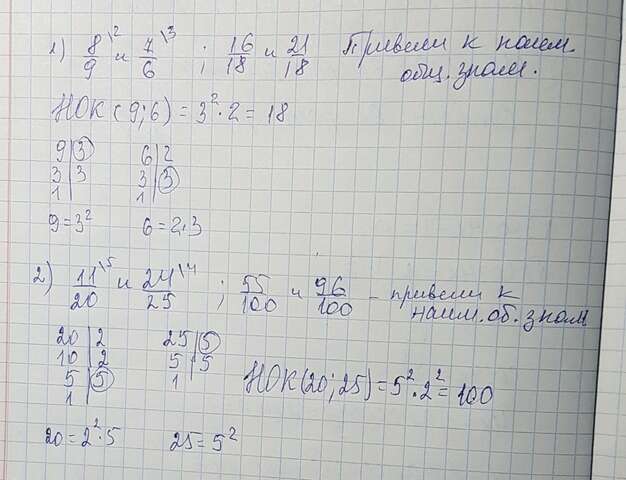 1) 8/9 \2 и 7/6 \3 ; 16/18 и 21/18 Привели к наим.
общ. знам.
НОК (9;6) = 3²·2 = 18
9|3 6|2
3|3 3|3
1| 1|
9=3² 6=2·3
2) 11/20 \5 и 24/25 \4 ; 55/100 и 96/100 - привели к
наим. об. знам
20|2 25|5
10|2 5|5
5|5 1
1|
НОК(20;25)=5²·2²=100
20=2²·5 25=5²